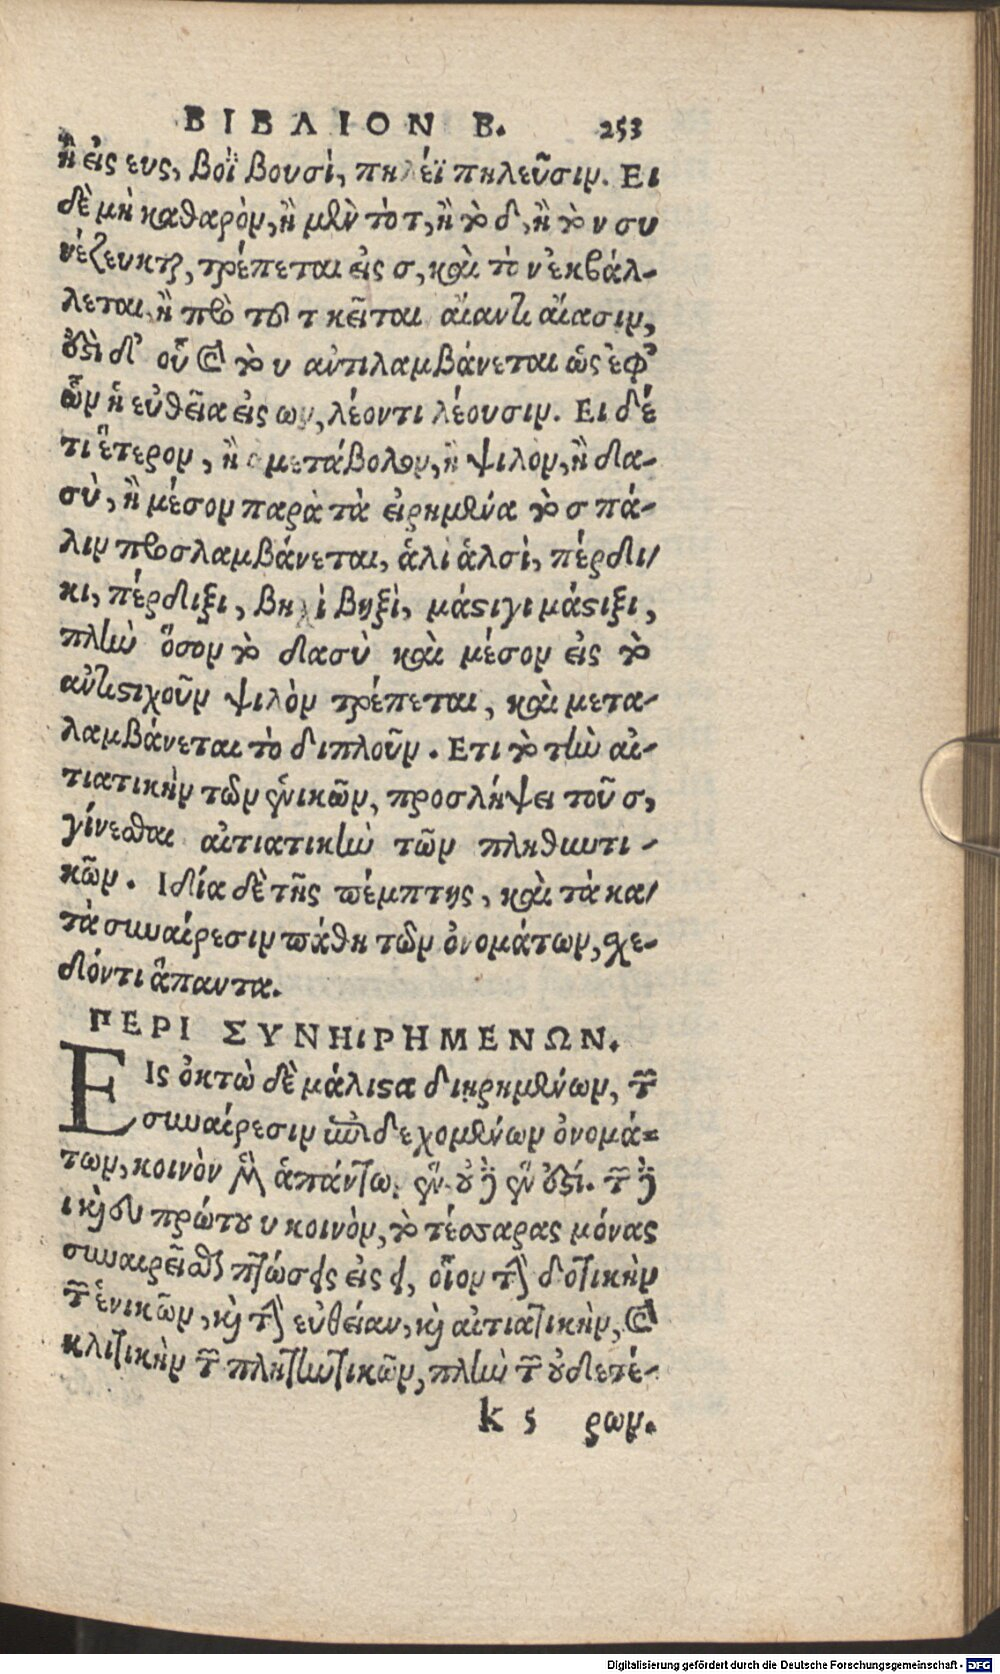 ΒΙΒΛΙΟΝ Β. 253
ἢ εἰς ευς, βοῒ βουσὶ, πηλέϊ πηλεῦσιν. Ει
δὲ μὴ καθαρὸν, ἢ μὲν τὸ τ, ἢ τὸ δ, ἢ τὸ ν συ
νέζευκται, τρέπεται εἰς σ, καὶ τὸ ν ἐκβάλ-
λεται, ἢ πρὸ τοῦ τ κεῖται αἴαντι αἴασιν,
οὐδὲ δι' οὗ καὶ τὸ υ αντιλαμβάνεται ὡς ἐφ'
ὧν ἡ εὐθεῖα εἰς ων, λέοντι λέουσιν. Ει δέ
τι ἕτερον, ἢ ἀμετάβολον, ἢ ψιλὸν, ἢ δα-
σὺ, ἢ μέσον παρὰ τὰ εἰρημένα τὸ σ πά-
λιν προσλαμβάνεται, ἁλὶ ἁλσὶ, πέρδι/
κι, πέρδιξι, βηχὶ βηξὶ, μάστιγι μάστιξι,
πλὴν ὅσον τὸ δασὺ καὶ μέσον εἰς τὸ
αὐτιστιχοῦν ψιλὸν τρέπεται, καὶ μετα-
λαμβάνεται τὸ διπλοῦν. Ετι τὸ τὴν αἰ-
τιατικὴν τῶν ἑνικῶν, προσλήψει τοῦ σ,
γίνεσθαι αἰτιατικὴν τῶν πληθυντι-
κῶν. Ιδία δὲ τῆς πέμπτης, καὶ τὰ κα/
τὰ συναίρεσιν πάθη τῶν ὀνομάτων, σχε-
δόντι ἅπαντα.
ΠΕΡΙ ΣΥΝΗΙΡΗΜΕΝΩΝ.
ΕΙς ὀκτὼ δὲ μάλιστα διῃρημένων, τῶν
συναίρεσιν ἐπιδεχομένων ὀνομά=
των, κοινὸν μὲν ἁπάντων,
πρώτου κοινὸν, τὸ τέσσαρας μόνας
συναιρεῖσθαι πτώσεις εἰς ει, οἷον τὴν δοτικὴν
τῶν ἑνικῶν, καὶ τὴν εὐθεῖαν, καὶ αἰτιατικὴν, καὶ
κλιτικὴν τῶν πληθυντικῶν, πλὴν τῶν οὐδετέ-
k 5 ρων.